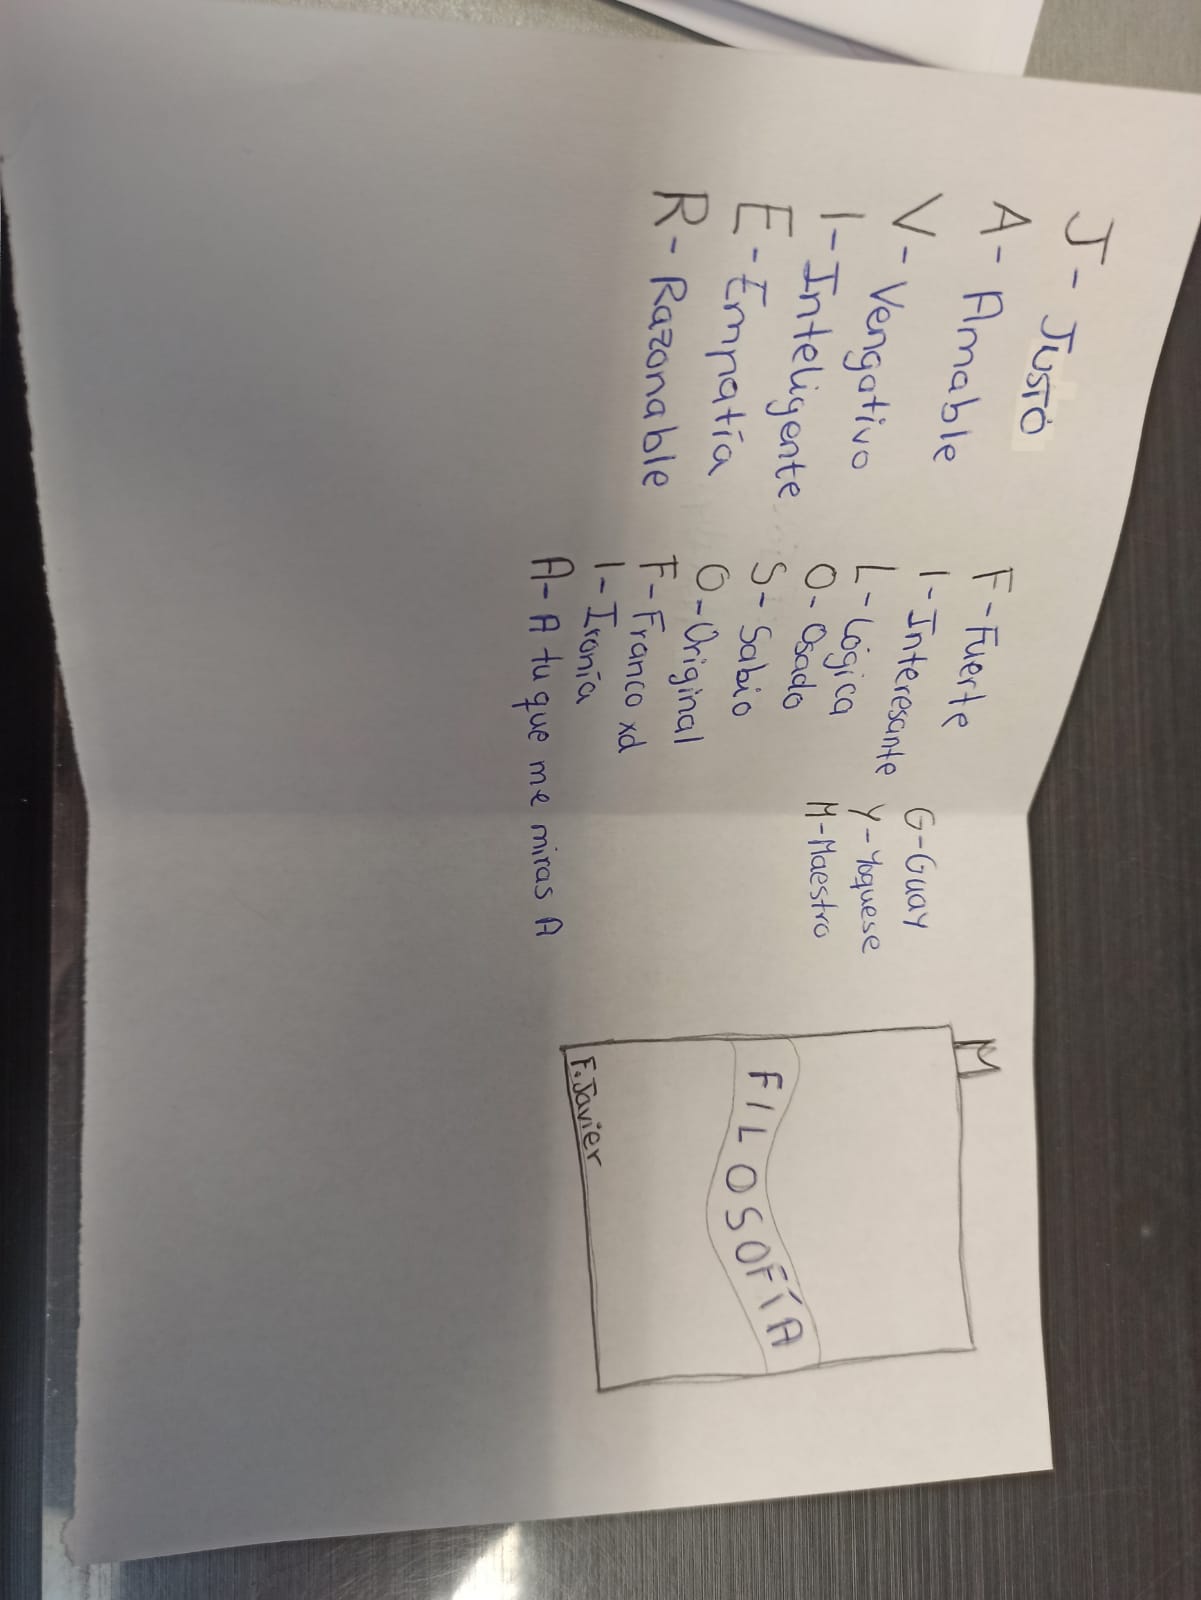 J - Justo
A - Amable
V - Vengativo
I - Inteligente
E - Empatía
R - Razonable
F - Fuerte
I - Interesante
L - Lógica
O - Osado
S - Sabio
O - Original
F - Franco xd
I - Ironía
A - A tu que me miras A
G - Guay
Y - Yoquese
M - Maestro
M
FILOSOFÍA
F. Javier